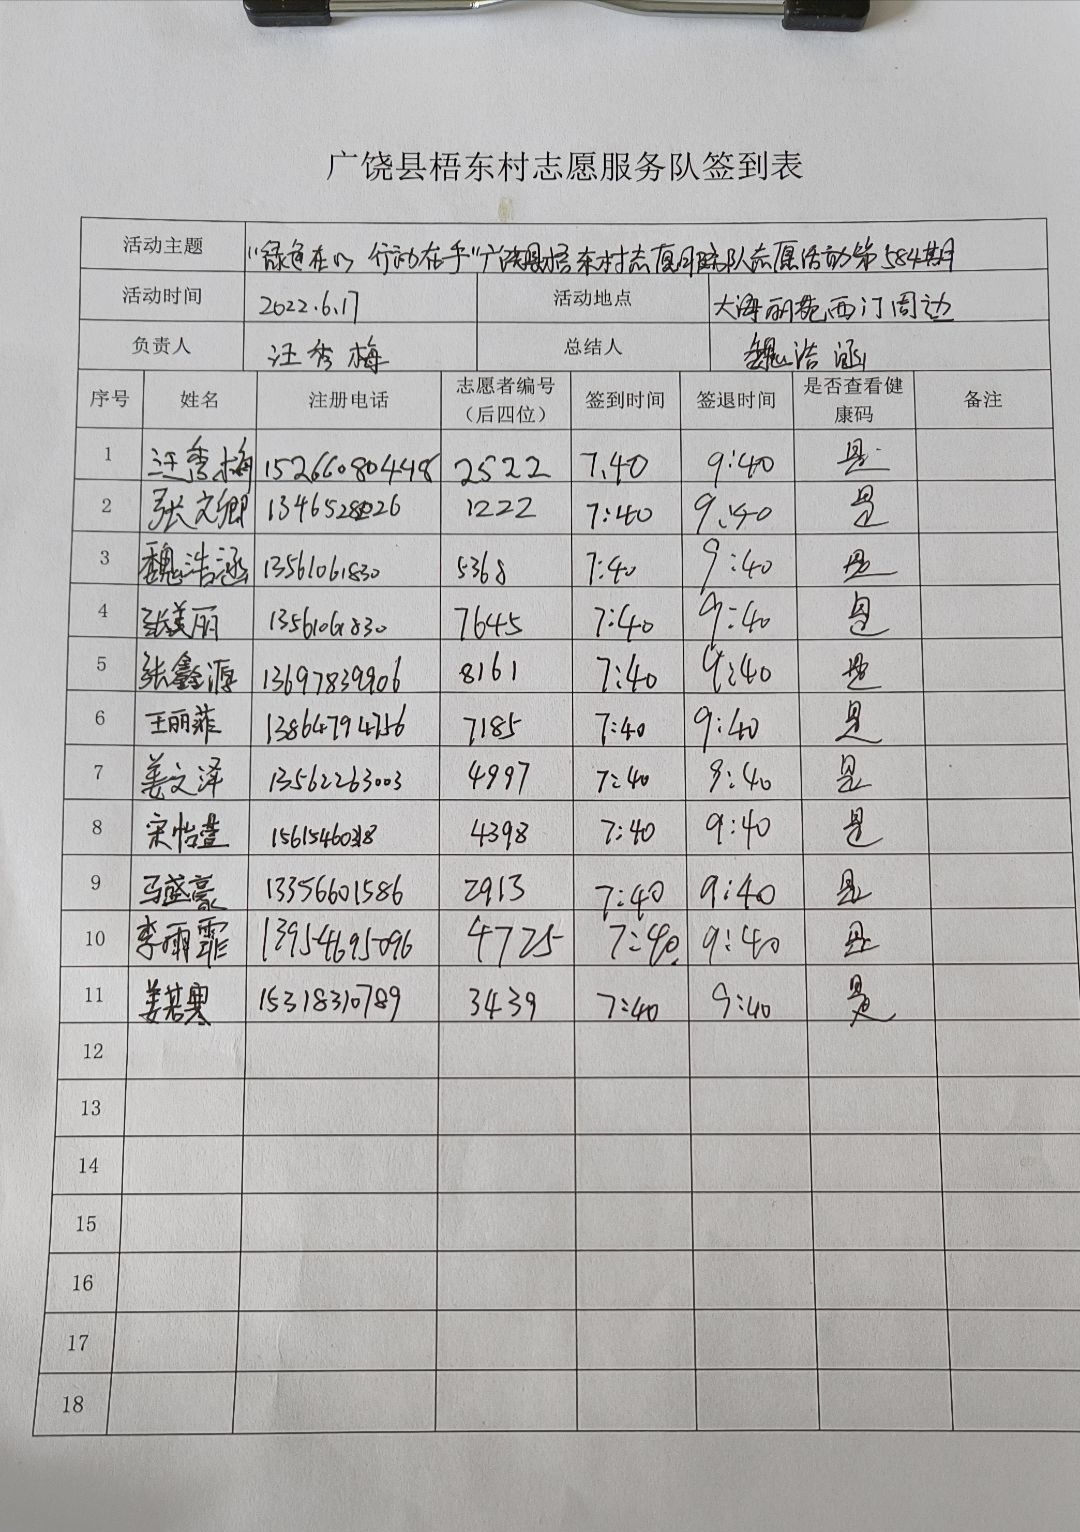 广饶县梧东村志愿服务队签到表
活动主题 "绿色在心 行动在手"广饶县梧东村志愿服务队志愿活动第584期
活动时间 2022.6.17 活动地点 大海丽苑西门周边
负责人 汪秀梅 总结人 魏浩涵
序号 姓名 注册电话 志愿者编号（后四位） 签到时间 签退时间 是否查看健康码 备注
1 汪秀梅 15266080448 2522 7.40 9:40 是
2 张文卿 1222 7:40 9:40 是
3 魏浩涵 13561061830 5368 7:40 9:40 是
4 张美丽 13561061830 7645 7:40 9:40 是
5 张鑫源 13697839906 8161 7:40 9:40 是
6 王丽菲 13864794756 7185 7:40 9:40 是
7 姜文泽 13562263003 4997 7:40 9:40 是
8 宋怡萱 4398 7:40 9:40 是
9 马盛豪 13356601586 2913 7:40 9:40 是
10 李雨霏 13954695096 4725 7:40 9:40 是
11 姜若寒 15318310789 3439 7:40 9:40 是
12
13
14
15
16
17
18